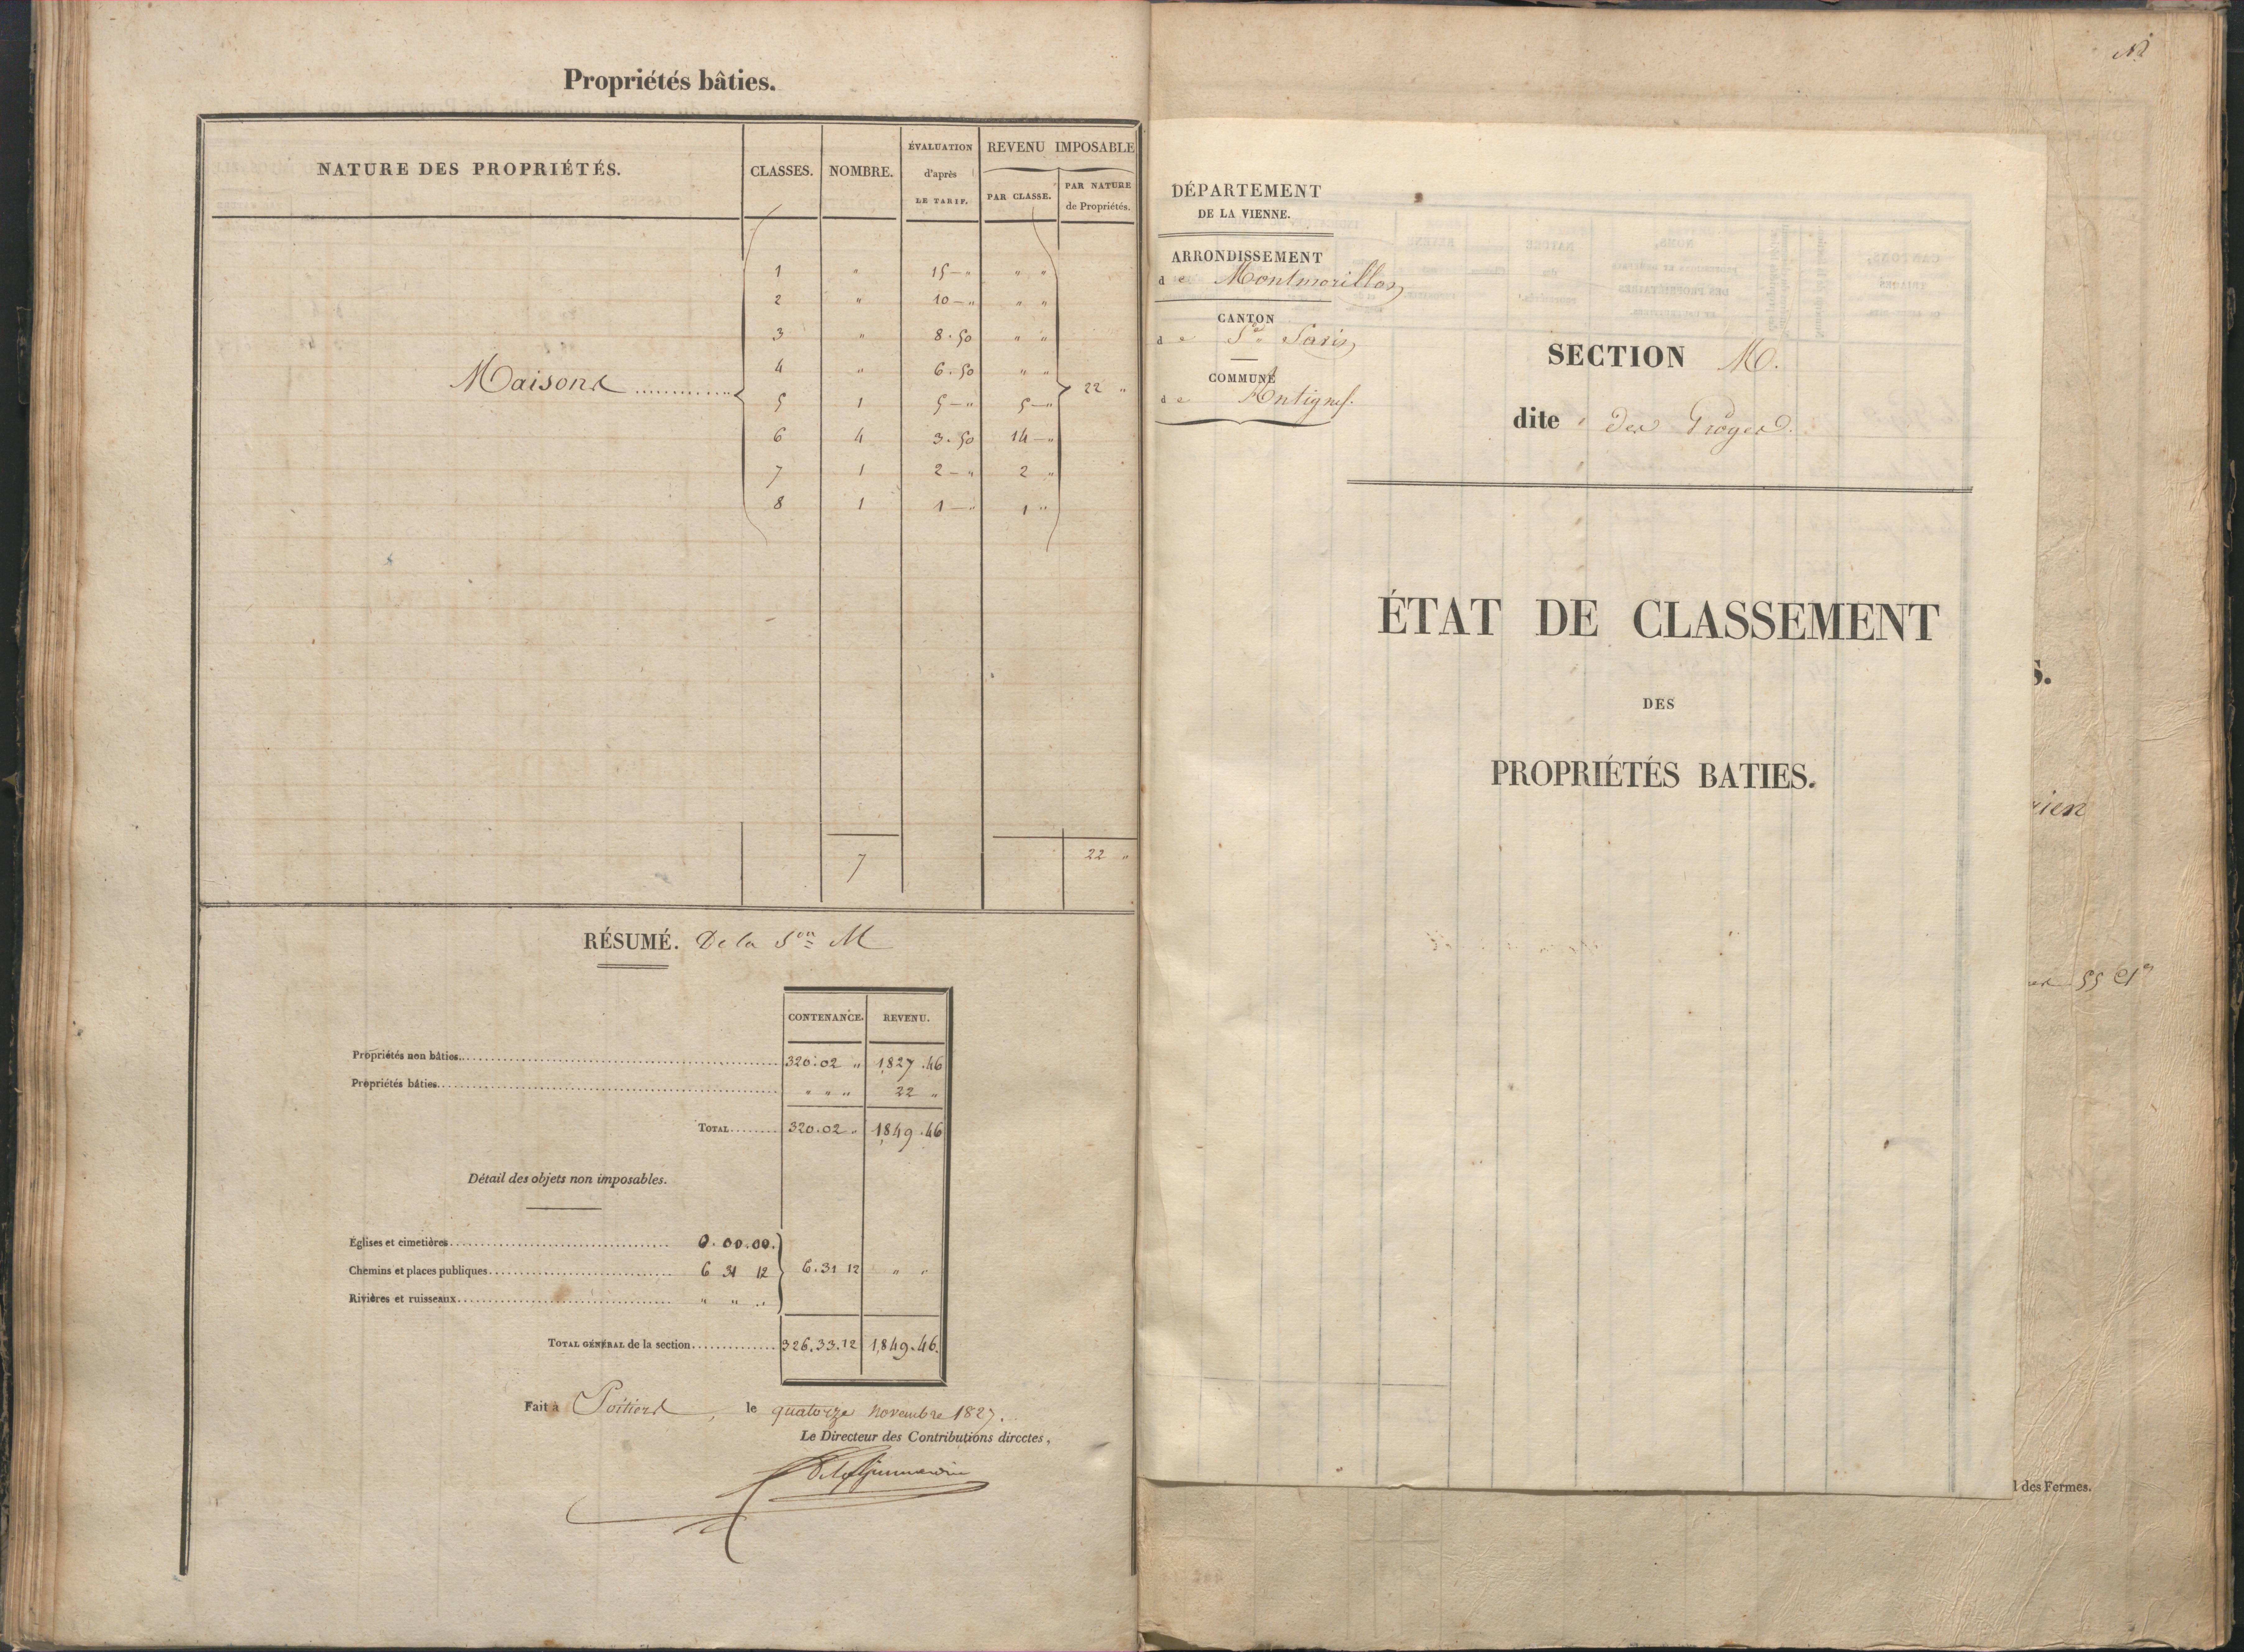 Propriétés bâties.
NATURE DES PROPRIÉTÉS. CLASSES. NOMBRE. ÉVALUATION d'après LE TARIF. REVENU IMPOSABLE PAR CLASSE. PAR NATURE de Propriétés.
1 " 15 — " " "
2 " 10 — " " "
3 " 8.50 " "
4 " 6.50 " "
Maisons ............ 22 "
5 1 5 — " 5 — "
6 4 3.50 14 — "
7 1 2 — " 2 "
8 1 1 — " 1 "
7 22 "
RÉSUMÉ. De la Son M
CONTENANCE. REVENU.
Propriétés non bâties. 320.02 " 1,827.46
Propriétés bâties. " " " 22 "
TOTAL 320.02 " 1,849.46
Détail des objets non imposables.
Églises et cimetières 0.00.00.
Chemins et places publiques 6 31 12 6.31 12 " "
Rivières et ruisseaux " " "
TOTAL GÉNÉRAL de la section 326.33.12 1,849.46.
Fait à Poitiers, le quatorze novembre 1827.
Le Directeur des Contributions directes,
DÉPARTEMENT
DE LA VIENNE.
ARRONDISSEMENT
de Montmorillon
CANTON
de St Savin
COMMUNE
de Antigny.
SECTION M.
dite des
ÉTAT DE CLASSEMENT
DES
PROPRIÉTÉS BATIES.
s.
rien
55
des Fermes.